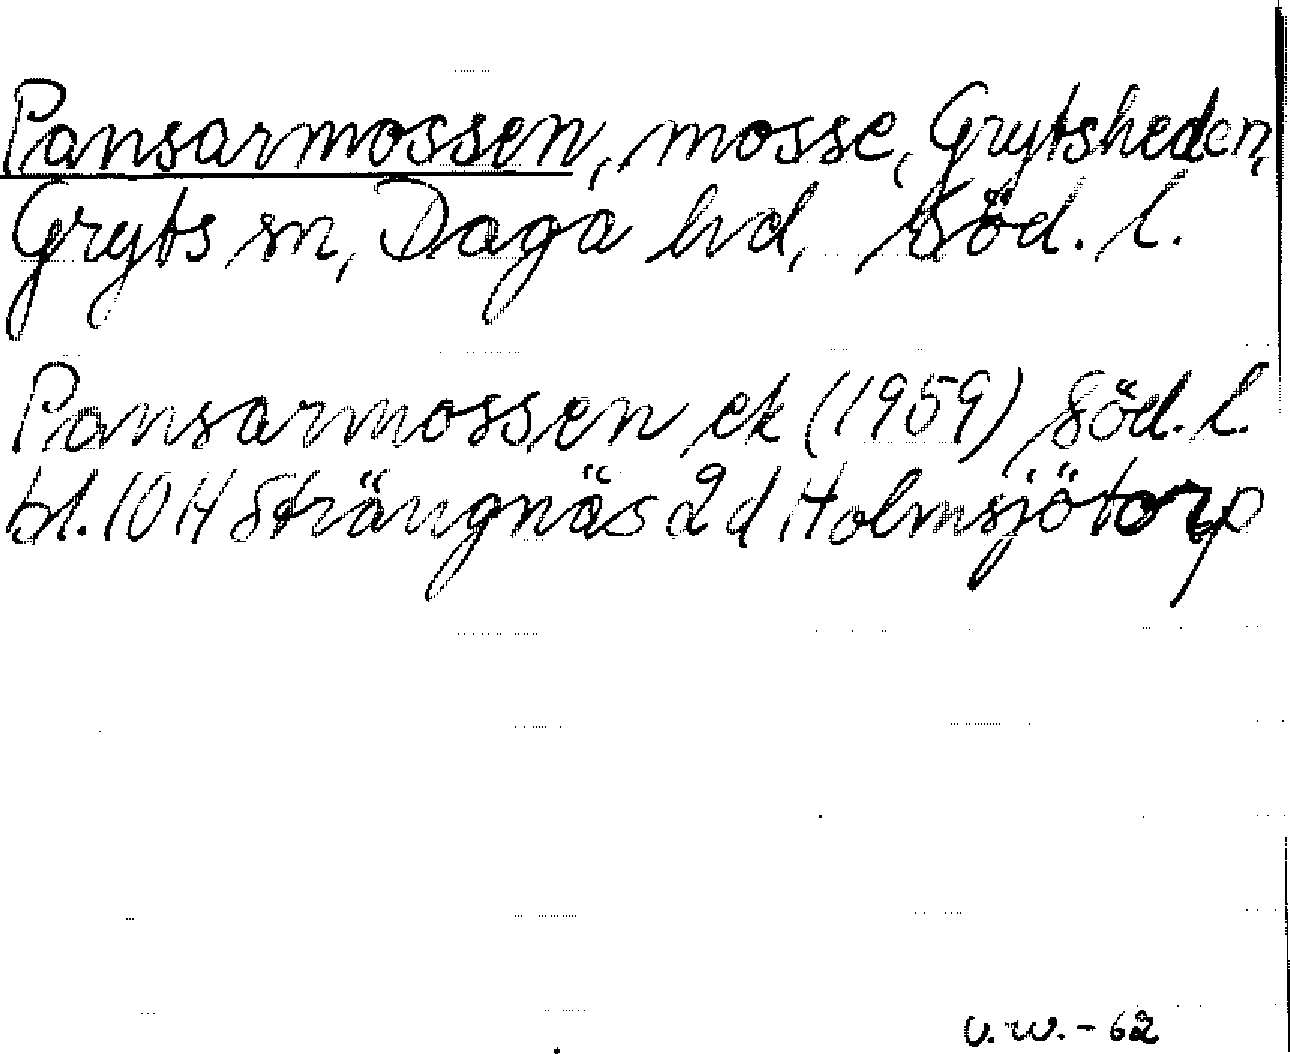 Pansarmossen, mosse, Grytsheden,
Gryts sn, Daga hd, Söd. l.
Pansarmossen ek (1959) Söd. l.
bl. 10 H Strängnäs 2 d Holmsjötorp
v.w. - 62